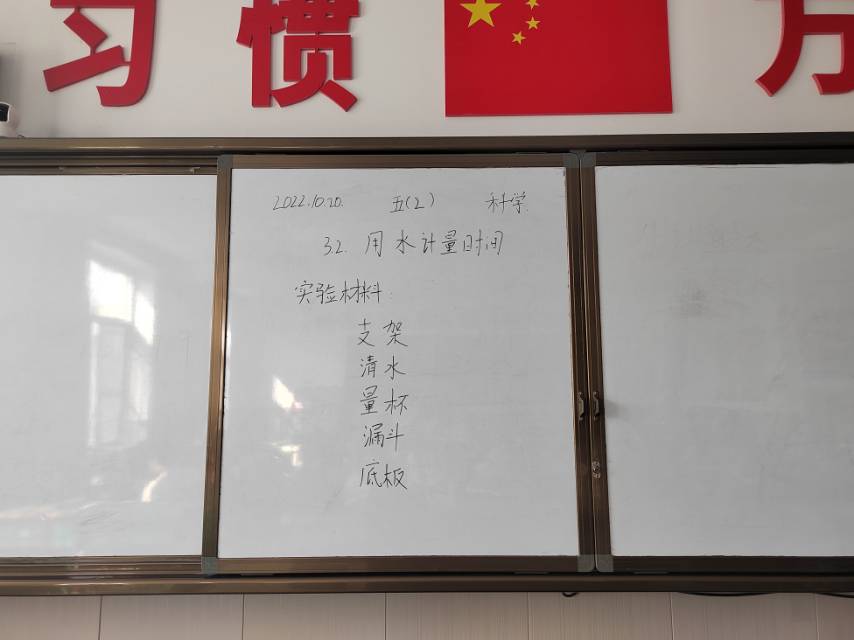 习惯 方
2022.10.20. 五(2) 科学
3.2. 用水计量时间
实验材料:
支架
清水
量杯
漏斗
底板